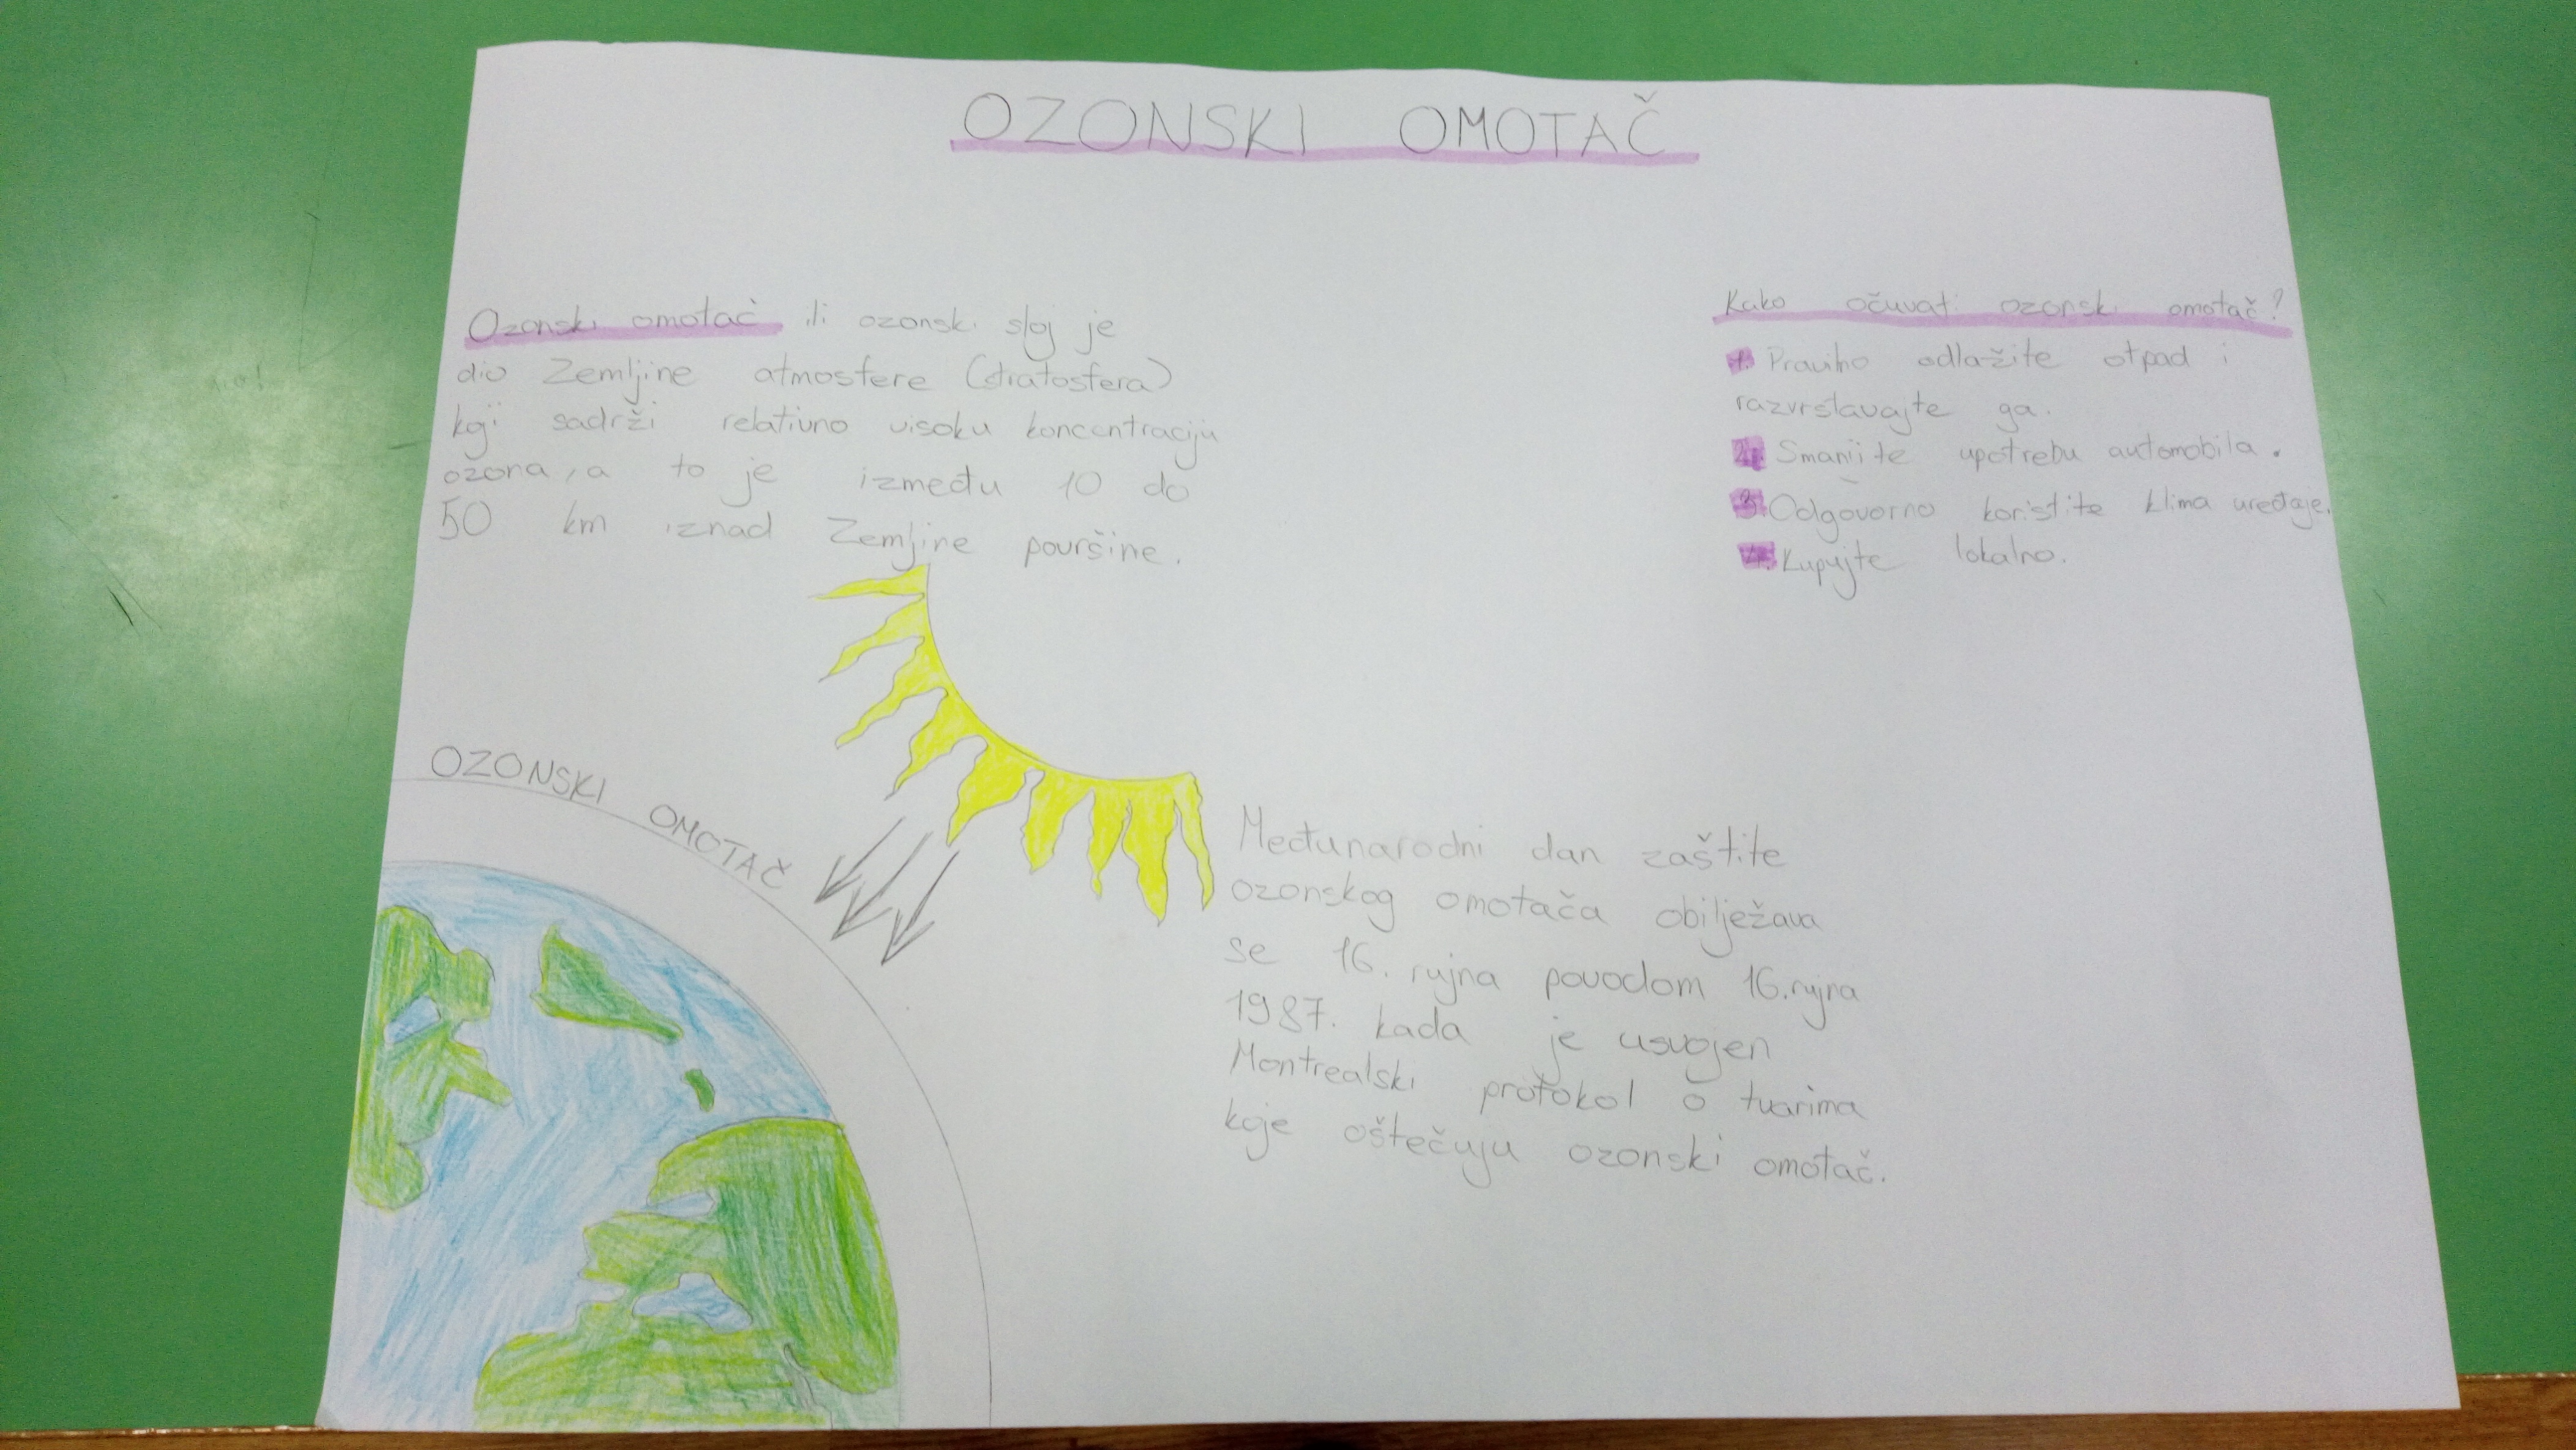 OZONSKI OMOTAČ
Ozonski omotač ili ozonski sloj je
dio Zemljine atmosfere (stratosfera)
koji sadrži relativno visoku koncentraciju
ozona, a to je između 10 do
50 km iznad Zemljine površine.
Kako očuvati ozonski omotač?
1. Pravilno odlažite otpad i
razvrstavajte ga.
2. Smanjite upotrebu automobila.
3. Odgovorno koristite klima uređaje.
4. Kupujte lokalno.
OZONSKI OMOTAČ
Međunarodni dan zaštite
ozonskog omotača obilježava
se 16. rujna povodom 16. rujna
1987. kada je usvojen
Montrealski protokol o tvarima
koje oštečuju ozonski omotač.